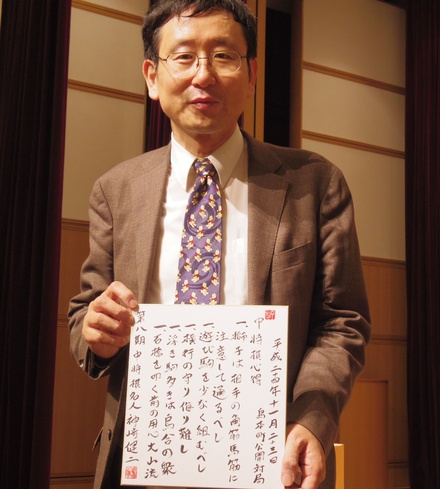 平成二四年十一月二十三日
中将棋心得　島本町公開対局
一、獅子は相手の角筋馬筋に
注意して通るべし
一、遊び駒を少なく組むべし
一、横行の守り侮り難し
一、浮き駒多きは烏合の衆
一、石橋を叩く前の用心大山流
第八期中将棋名人　神崎健二